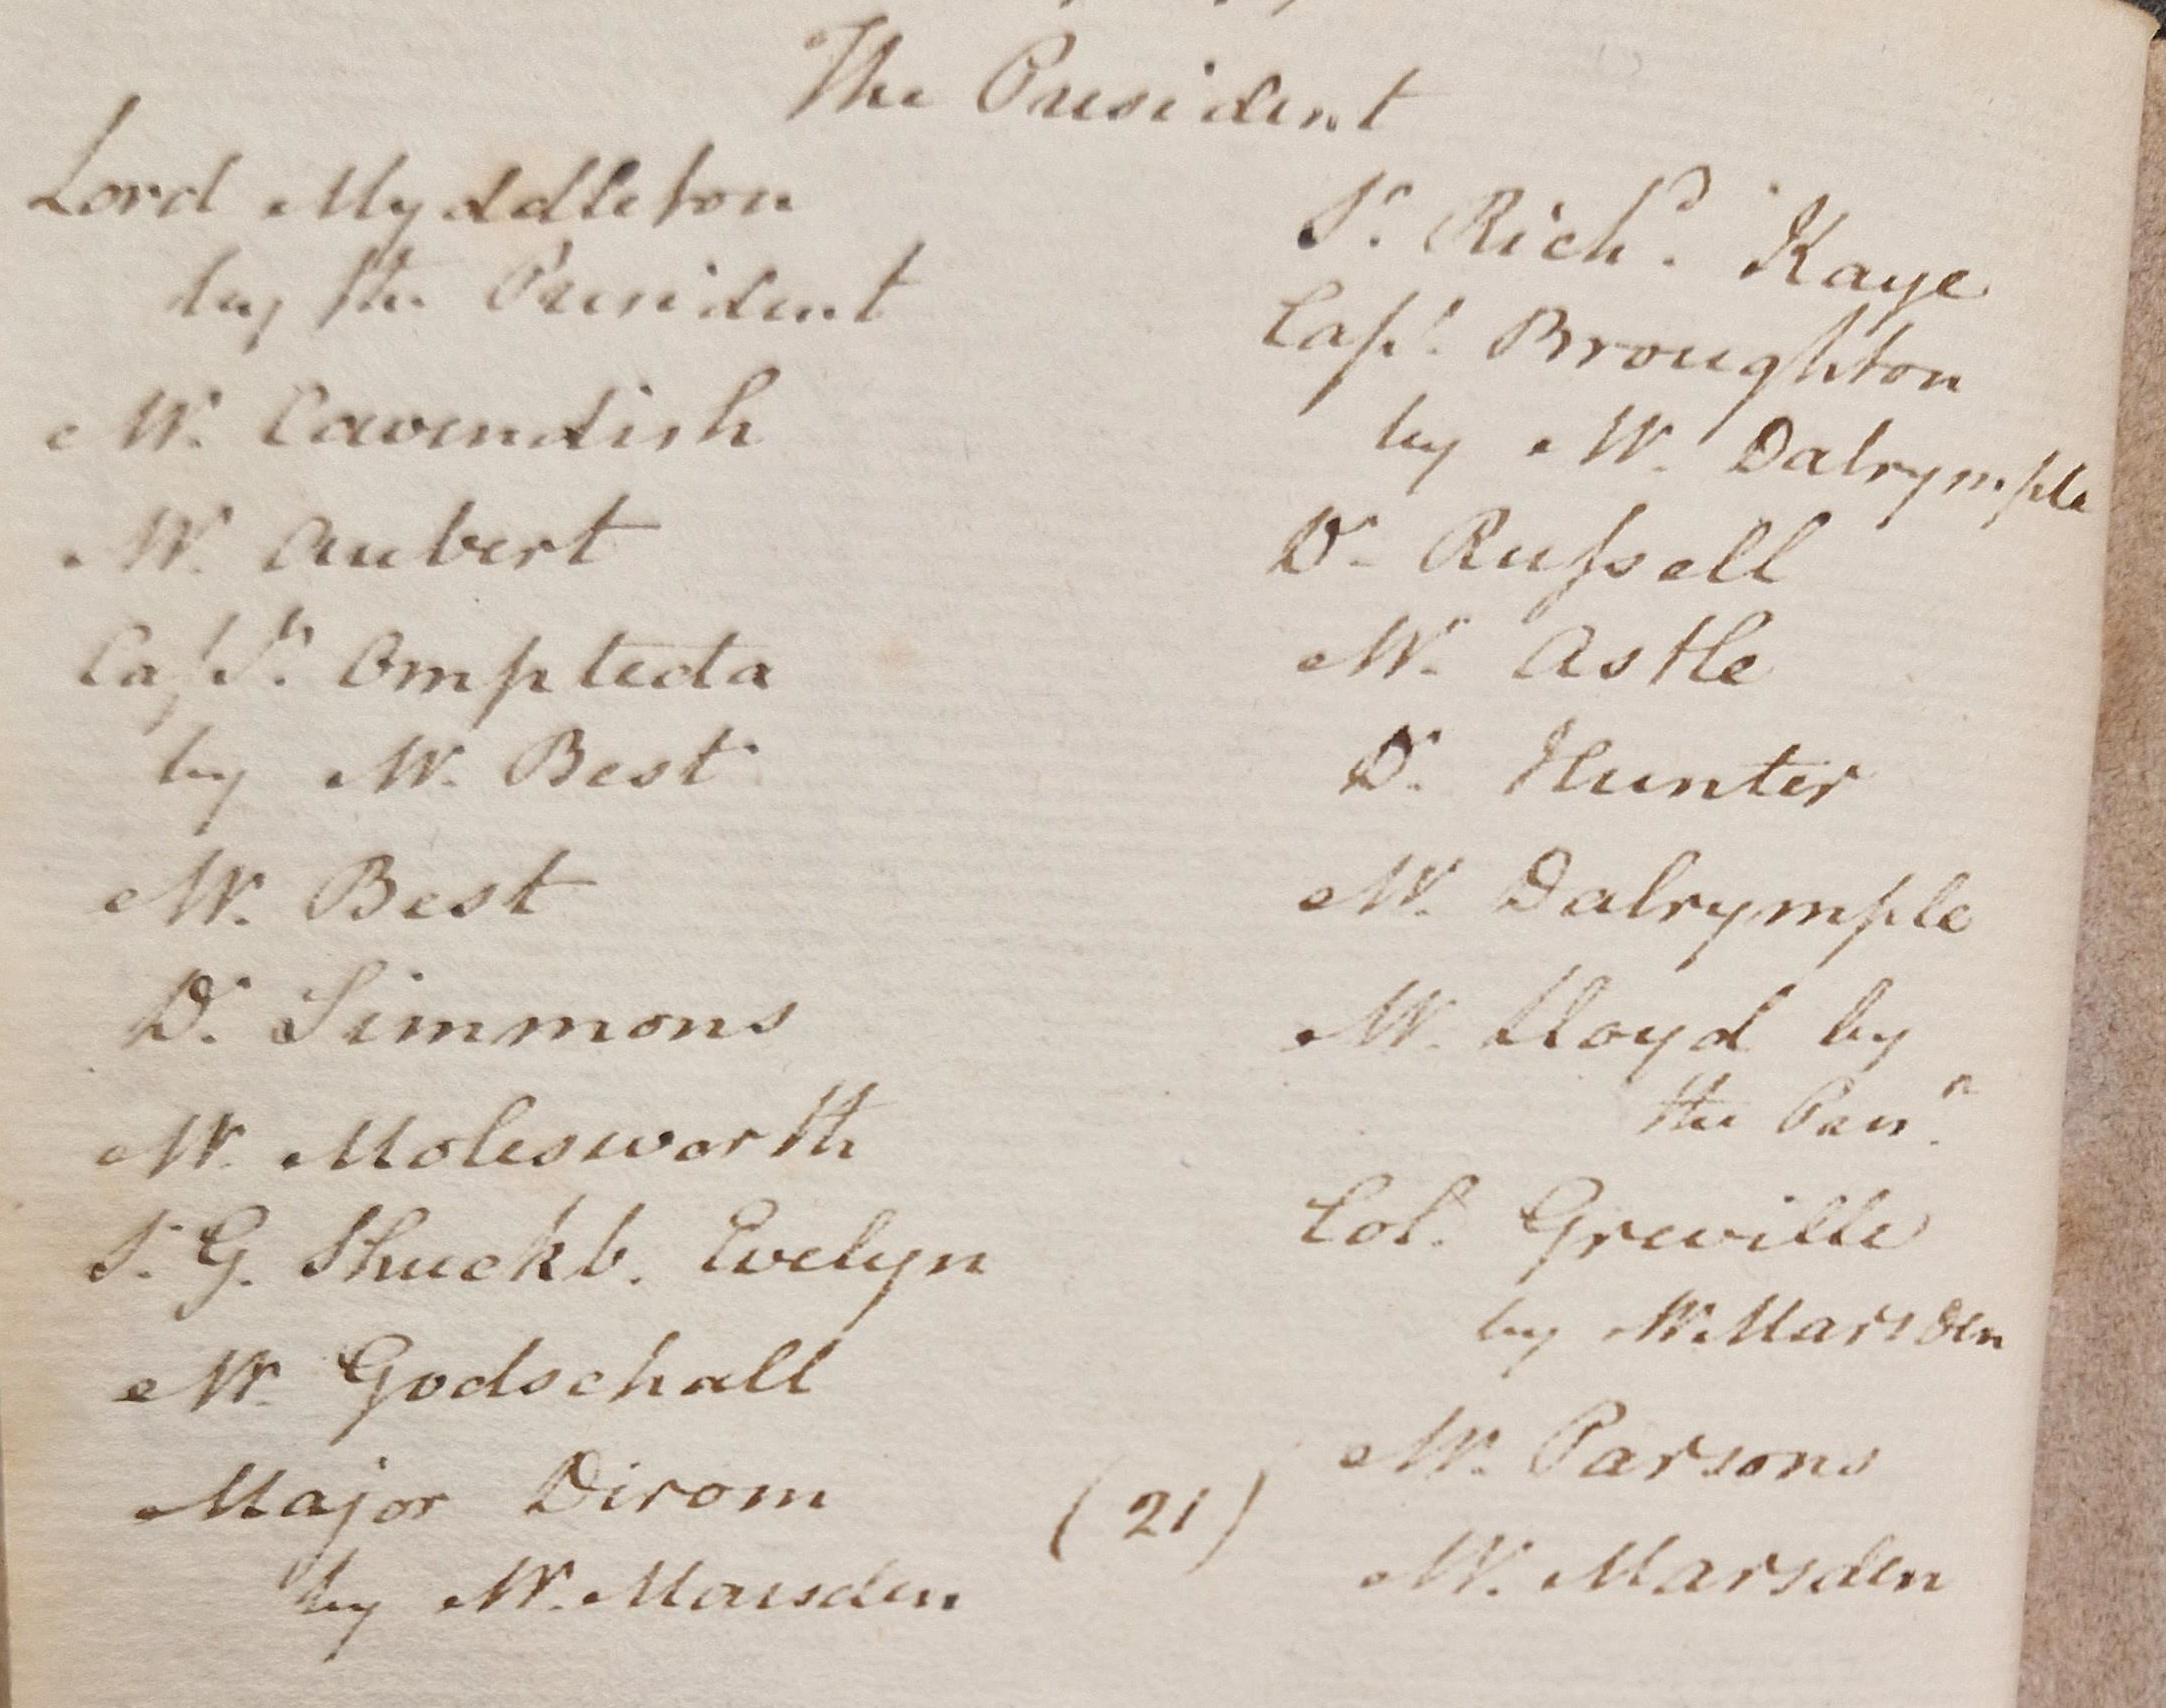 The President
Lord Myddleton
by the President
Mr. Cavendish
Mr. Aubert
Capt.n Ompteda
by Mr. Best
Mr. Best
Dr. Simmons
Mr. Molesworth
Sr. G. Shuckb. Evelyn
Mr. Godschall
Major Dirom
by Mr. Marsden
(21)
Sr. Richd. Kaye
Capt. Broughton
by Mr. Dalrymple
Dr. Rufsell
Mr. Astle
Dr. Hunter
Mr. Dalrymple
Mr. Lloyd by
the
Col. Greville
by Mr. Marsden
Mr. Parsons
Mr. Marsden